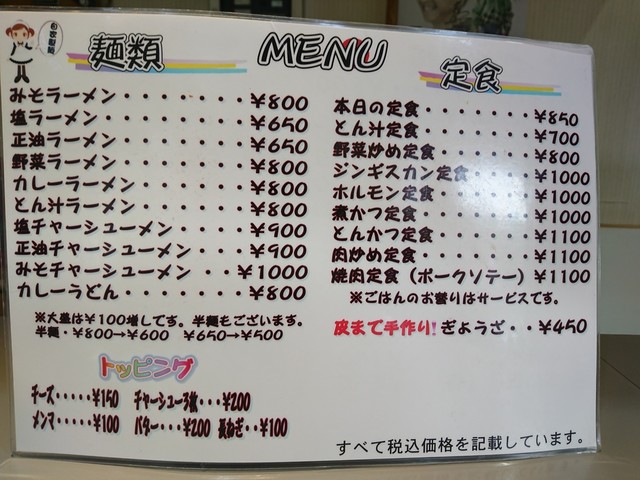 自家製麺
麺類
MENU
みそラーメン・・・・・・・¥800
塩ラーメン・・・・・・・・¥650
正油ラーメン・・・・・・・¥650
野菜ラーメン・・・・・・・¥800
カレーラーメン・・・・・・¥800
とん汁ラーメン・・・・・・¥800
塩チャーシューメン・・・・¥900
正油チャーシューメン・・・¥900
みそチャーシューメン・・¥1000
カレーうどん・・・・・・・¥800
※大盛は¥100増しです。半麺もございます。
半麺・¥800→¥600 ¥650→¥500
トッピング
チーズ・・・・・¥150 チャーシュー3枚・・・¥200
メンマ・・・・・¥100 バター・・・¥200 長ねぎ・・¥100
定食
本日の定食・・・・・・・¥850
とん汁定食・・・・・・・¥700
野菜炒め定食・・・・・・¥800
ジンギスカン定食・・・・¥1000
ホルモン定食・・・・・・¥1000
煮かつ定食・・・・・・・¥1000
とんかつ定食・・・・・・¥1100
肉炒め定食・・・・・・・¥1100
焼肉定食(ポークソテー)¥1100
※ごはんのお替りはサービスです。
皮まで手作り!ぎょうざ・・¥450
すべて税込価格を記載しています。